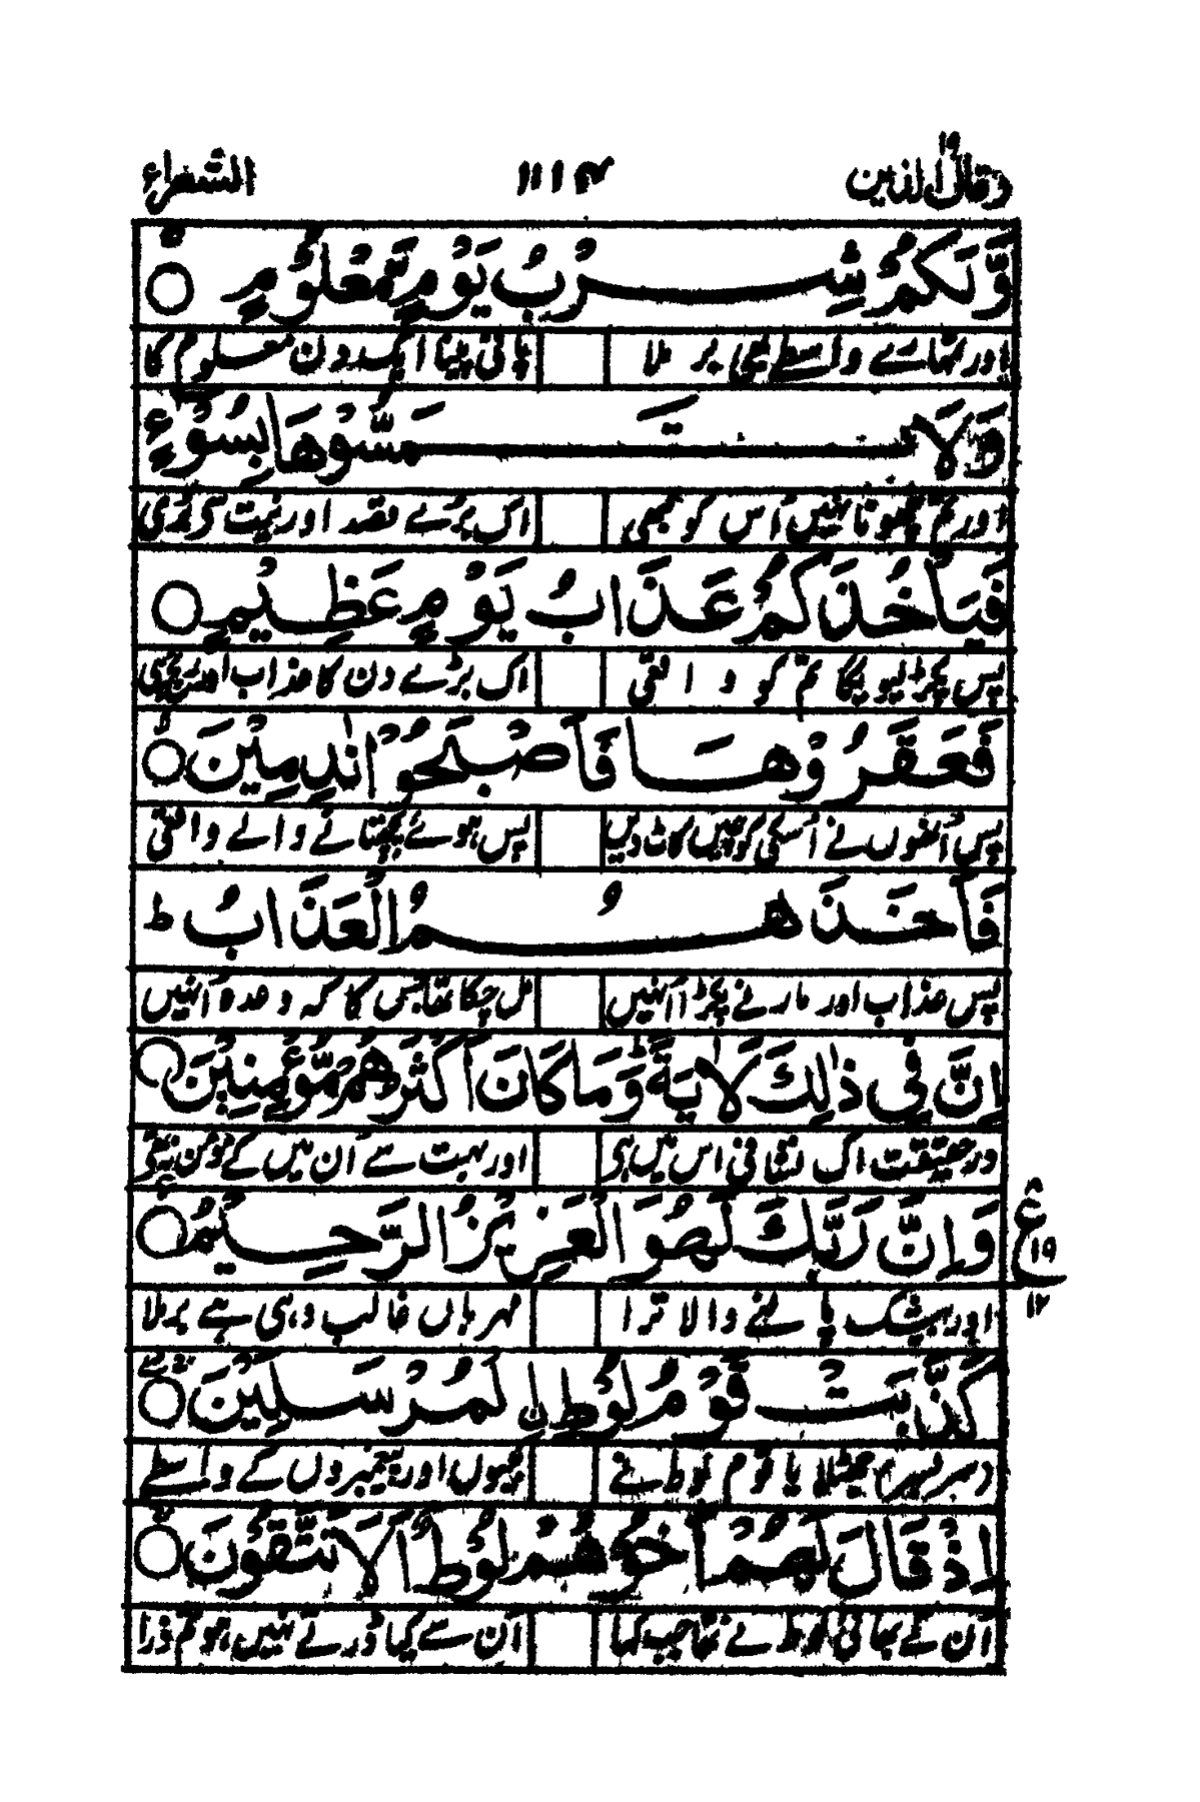 وقال الذین ۱۹ ۱۱۱۴ الشعراء
وَّلَكُمْ شِرْبُ يَوْمٍ مَّعْلُوْمٍ
اور تمہارے واسطے بھی بر ملا پانی پینا ایک دن معلوم کا
وَلَا تَمَسُّوْهَا بِسُوْٓءٍ
اور تم چھونا نہیں اُس کو کبھی اک بُرے قصد اور نیت
فَيَاْخُذَكُمْ عَذَابُ يَوْمٍ عَظِيْمٍ
پس پکڑ لیویگا تم کو واقعی اک بڑے دن کا عذاب اور
فَعَقَرُوْهَا فَاَصْبَحُوْا نٰدِمِيْنَ
پس اُنھوں نے اُسکی کونچیں کاٹ دیں پس ہوئے پچھتانے والے واقعی
فَاَخَذَهُمُ الْعَذَابُ ط
پس عذاب اور مار نے پکڑا اُنہیں مل چکا تھا جس کا کہ وعدہ اُنہیں
اِنَّ فِيْ ذٰلِكَ لَاٰيَةً وَمَا كَانَ اَكْثَرُهُمْ مُّؤْمِنِيْنَ
در حقیقت اک نشانی اس میں ہی اور بہت سے اُن میں کے مومن
وَاِنَّ رَبَّكَ لَهُوَ الْعَزِيْزُ الرَّحِيْمُ
ع ۱۹ ۱۲
اور بیشک پالنے والا ترا مہرباں غالب وہی ہے برملا
كَذَّبَتْ قَوْمُ لُوْطِ ِۨالْمُرْسَلِيْنَ
جھٹلایا قوم لوط نے اور پیغمبروں کے واسطے
اِذْ قَالَ لَهُمْ اَخُوْهُمْ لُوْطٌ اَلَا تَتَّقُوْنَ
اُن کے بھائی لوط نے تھا جب کہا اُن سے کیا ڈرتے نہیں ہو تم ذرا